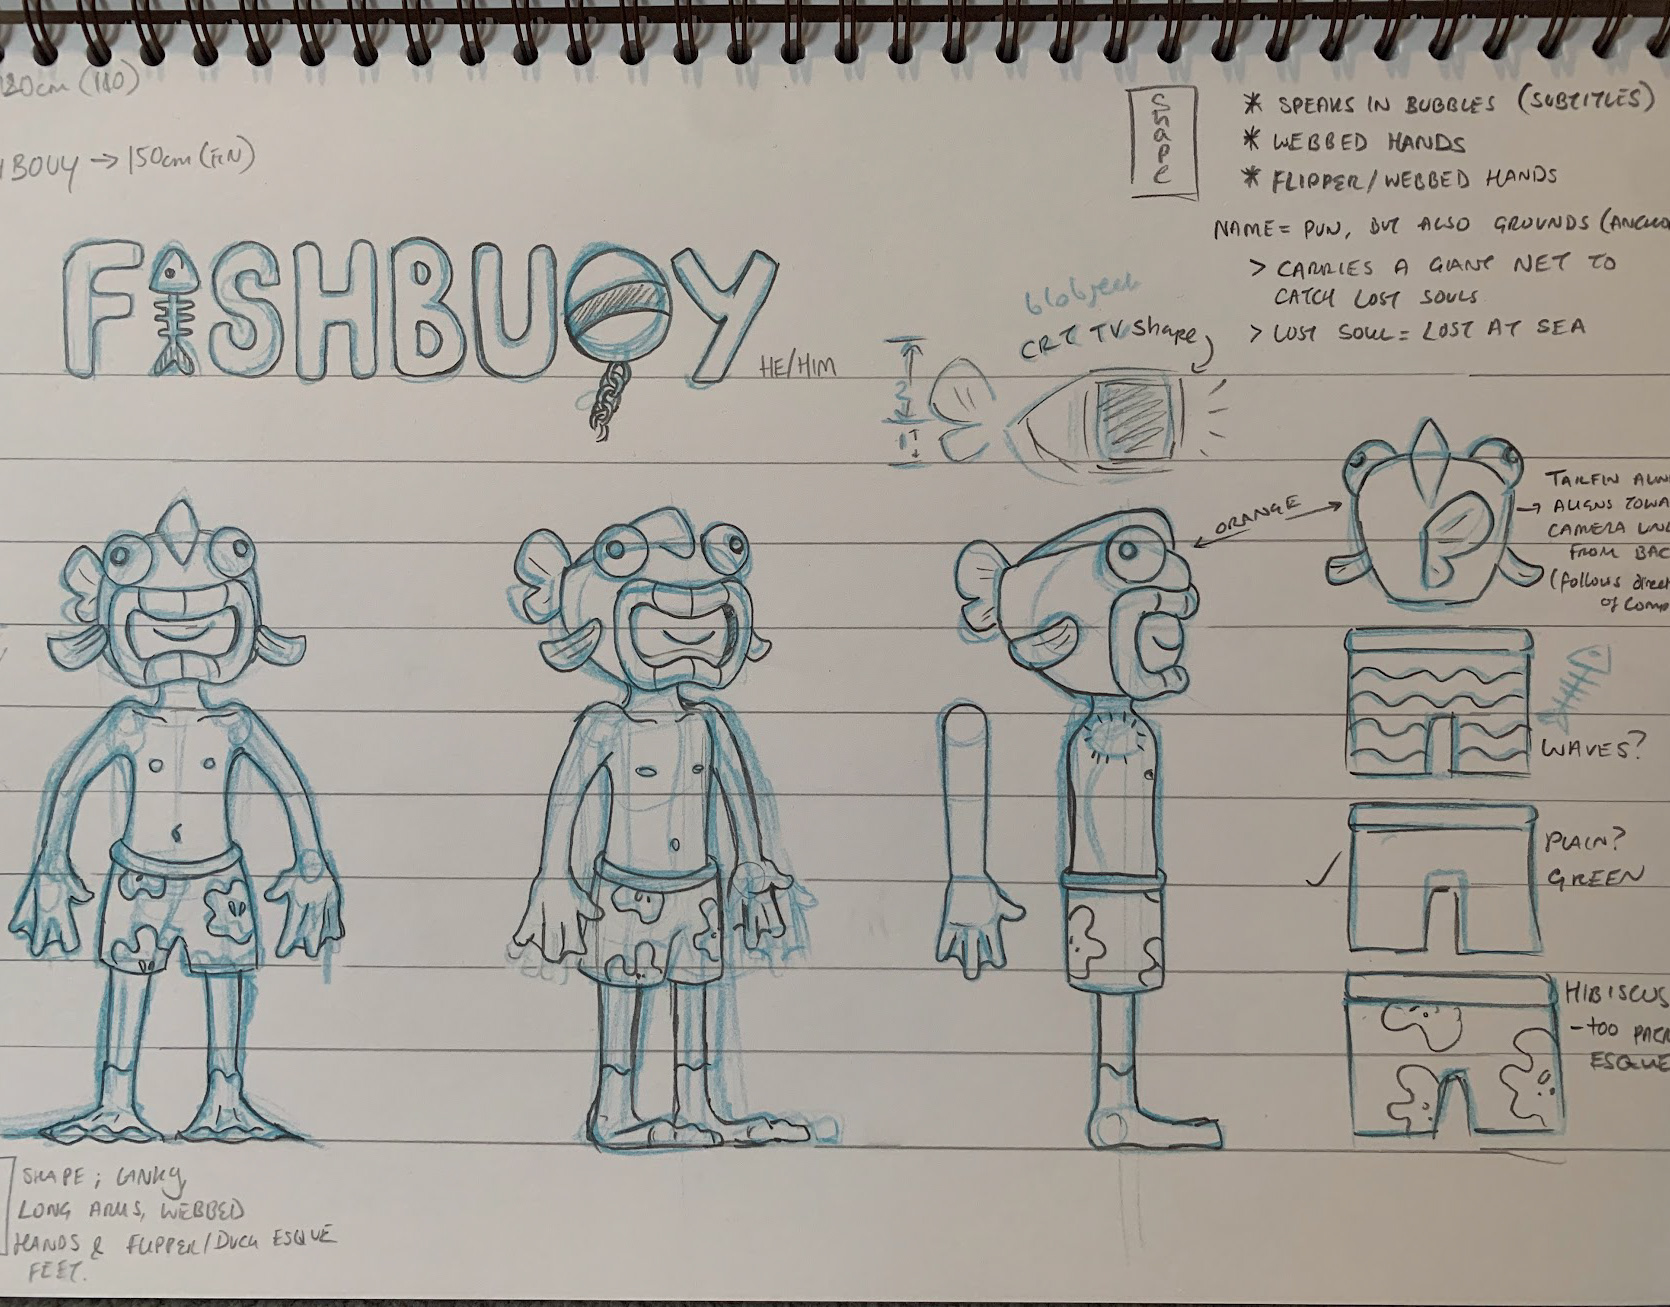 120cm (110)
BOUY → 150cm (FIN)
FISHBUOY
HE/HIM
Shape
* SPEAKS IN BUBBLES (SUBTITLES)
* WEBBED HANDS
* FLIPPER/WEBBED HANDS
NAME = PUN, BUT ALSO GROUNDS (ANCHO
> CARRIES A GIANT NET TO
CATCH LOST SOULS
> LOST SOUL = LOST AT SEA
blobject
CRT TV shape
2
1
ORANGE
TAILFIN
→ ALIGNS TOWA
CAMERA
FROM BAC
(follows direct
of comp
WAVES?
PLAIN?
✓ GREEN
HIBISCUS
- TOO
ESQUE
SHAPE; LANKY,
LONG ARMS, WEBBED
HANDS & FLIPPER/DUCK ESQUE
FEET.